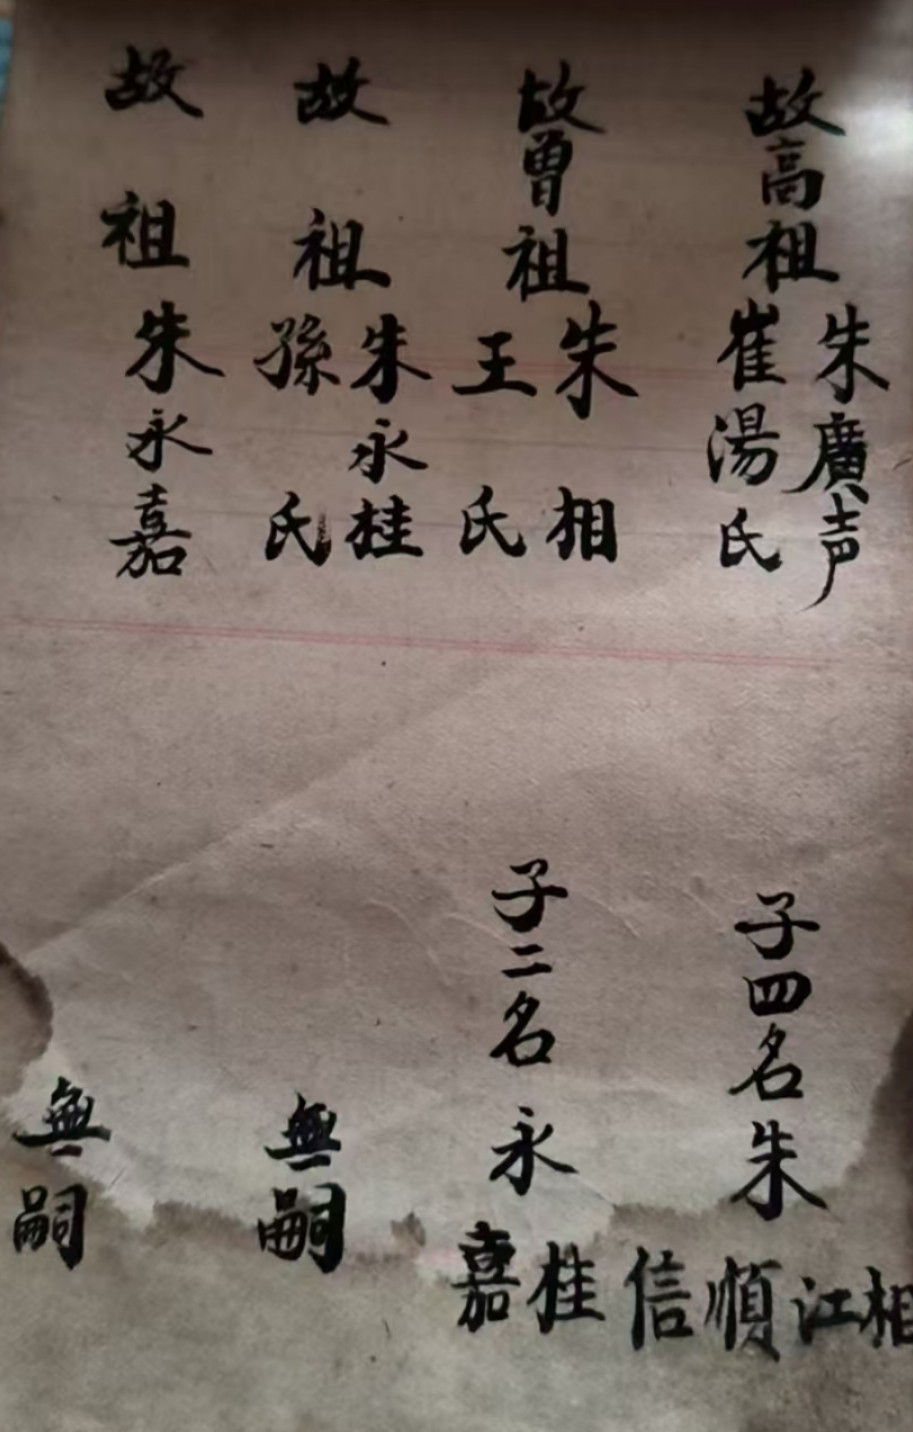 故高祖朱廣声
崔湯氏
子四名朱相江順信
故曾祖朱相
王氏
子二名永桂嘉
故祖朱永桂
孫氏
無嗣
故祖朱永嘉
無嗣